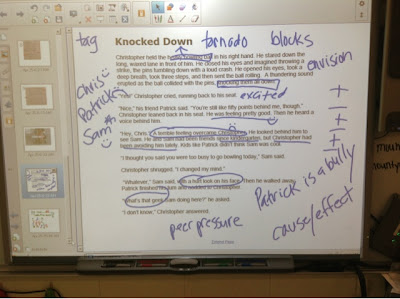 tag Knocked Down tornado blocks
Christopher held the heavy bowling ball in his right hand. He stared down the
long, waxed lane in front of him. He closed his eyes and imagined throwing a
strike, the pins tumbling down with a loud crash. He opened his eyes, took a
deep breath, took three steps, and then sent the ball rolling. A thundering sound
erupted as the ball collided with the pins, knocking them all down.
envision
Chris
Patrick
Sam
Christopher cried, running back to his seat. excited
"Nice," his friend Patrick said. "You're still like fifty points behind me, though."
Christopher leaned back in his chair. He was feeling pretty good. Then he heard a
voice behind him.
"Hey, Chris." A terrible feeling overcame Christopher. He looked behind him to
see Sam. He and Sam had been friends since kindergarten, but Christopher had
been avoiding him lately. Kids like Patrick didn't think Sam was cool.
"I thought you said you were too busy to go bowling today," Sam said.
Christopher shrugged. "I changed my mind."
"Whatever," Sam said, a hurt look on his face. Then he walked away.
Patrick finished his turn and walked to Christopher.
"What's that geek Sam doing here?" he asked.
"I don't know," Christopher answered.
+
+
+
Patrick is a bully
peer pressure
cause/effect